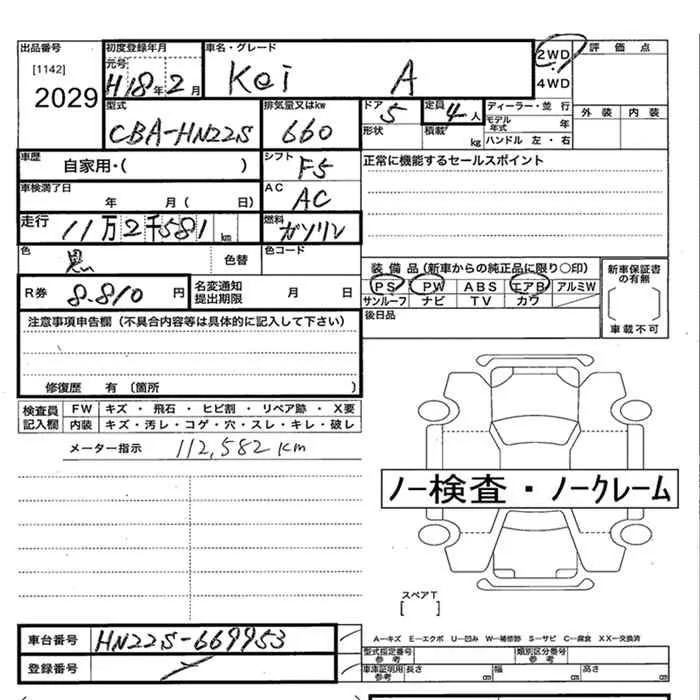 出品番号 初度登録年月 車名・グレード 2WD 評価点
[1142] 元号 4WD
2029 H18年2月 Kei A
型式 排気量又はkw ドア 定員 ディーラー・並行 外装 内装
CBA-HN22S 660 5 4人 モデル年式 年
形状 積載 kg ハンドル 左・右
車歴 自家用・( ) シフト F5 正常に機能するセールスポイント
車検満了日 年 月( 日) AC AC
走行 11万2千581km 燃料 ガソリン
色 黒 色替 色コード
装備品(新車からの純正品に限り〇印) 新車保証書の有無
R券 8.810円 名変通知提出期限 月 日 PS PW ABS エアB アルミW
サンルーフ ナビ TV カワ
注意事項申告欄(不具合内容等は具体的に記入して下さい) 後日品 車載不可
修復歴 有(箇所 )
検査員 FW キズ・飛石・ヒビ割・リペア跡・X要
記入欄 内装 キズ・汚レ・コゲ・穴・スレ・キレ・破レ
メーター指示 112,582km
ノー検査・ノークレーム
スペアT
[ ]
車台番号 HN22S-669953 A-キズ E-エクボ U-凹み W-補修跡 S-サビ C-腐食 XX-交換済
型式指定番号 参考 類別区分番号 参考
登録番号 車庫証明用参考 長さ cm 幅 cm 高さ cm